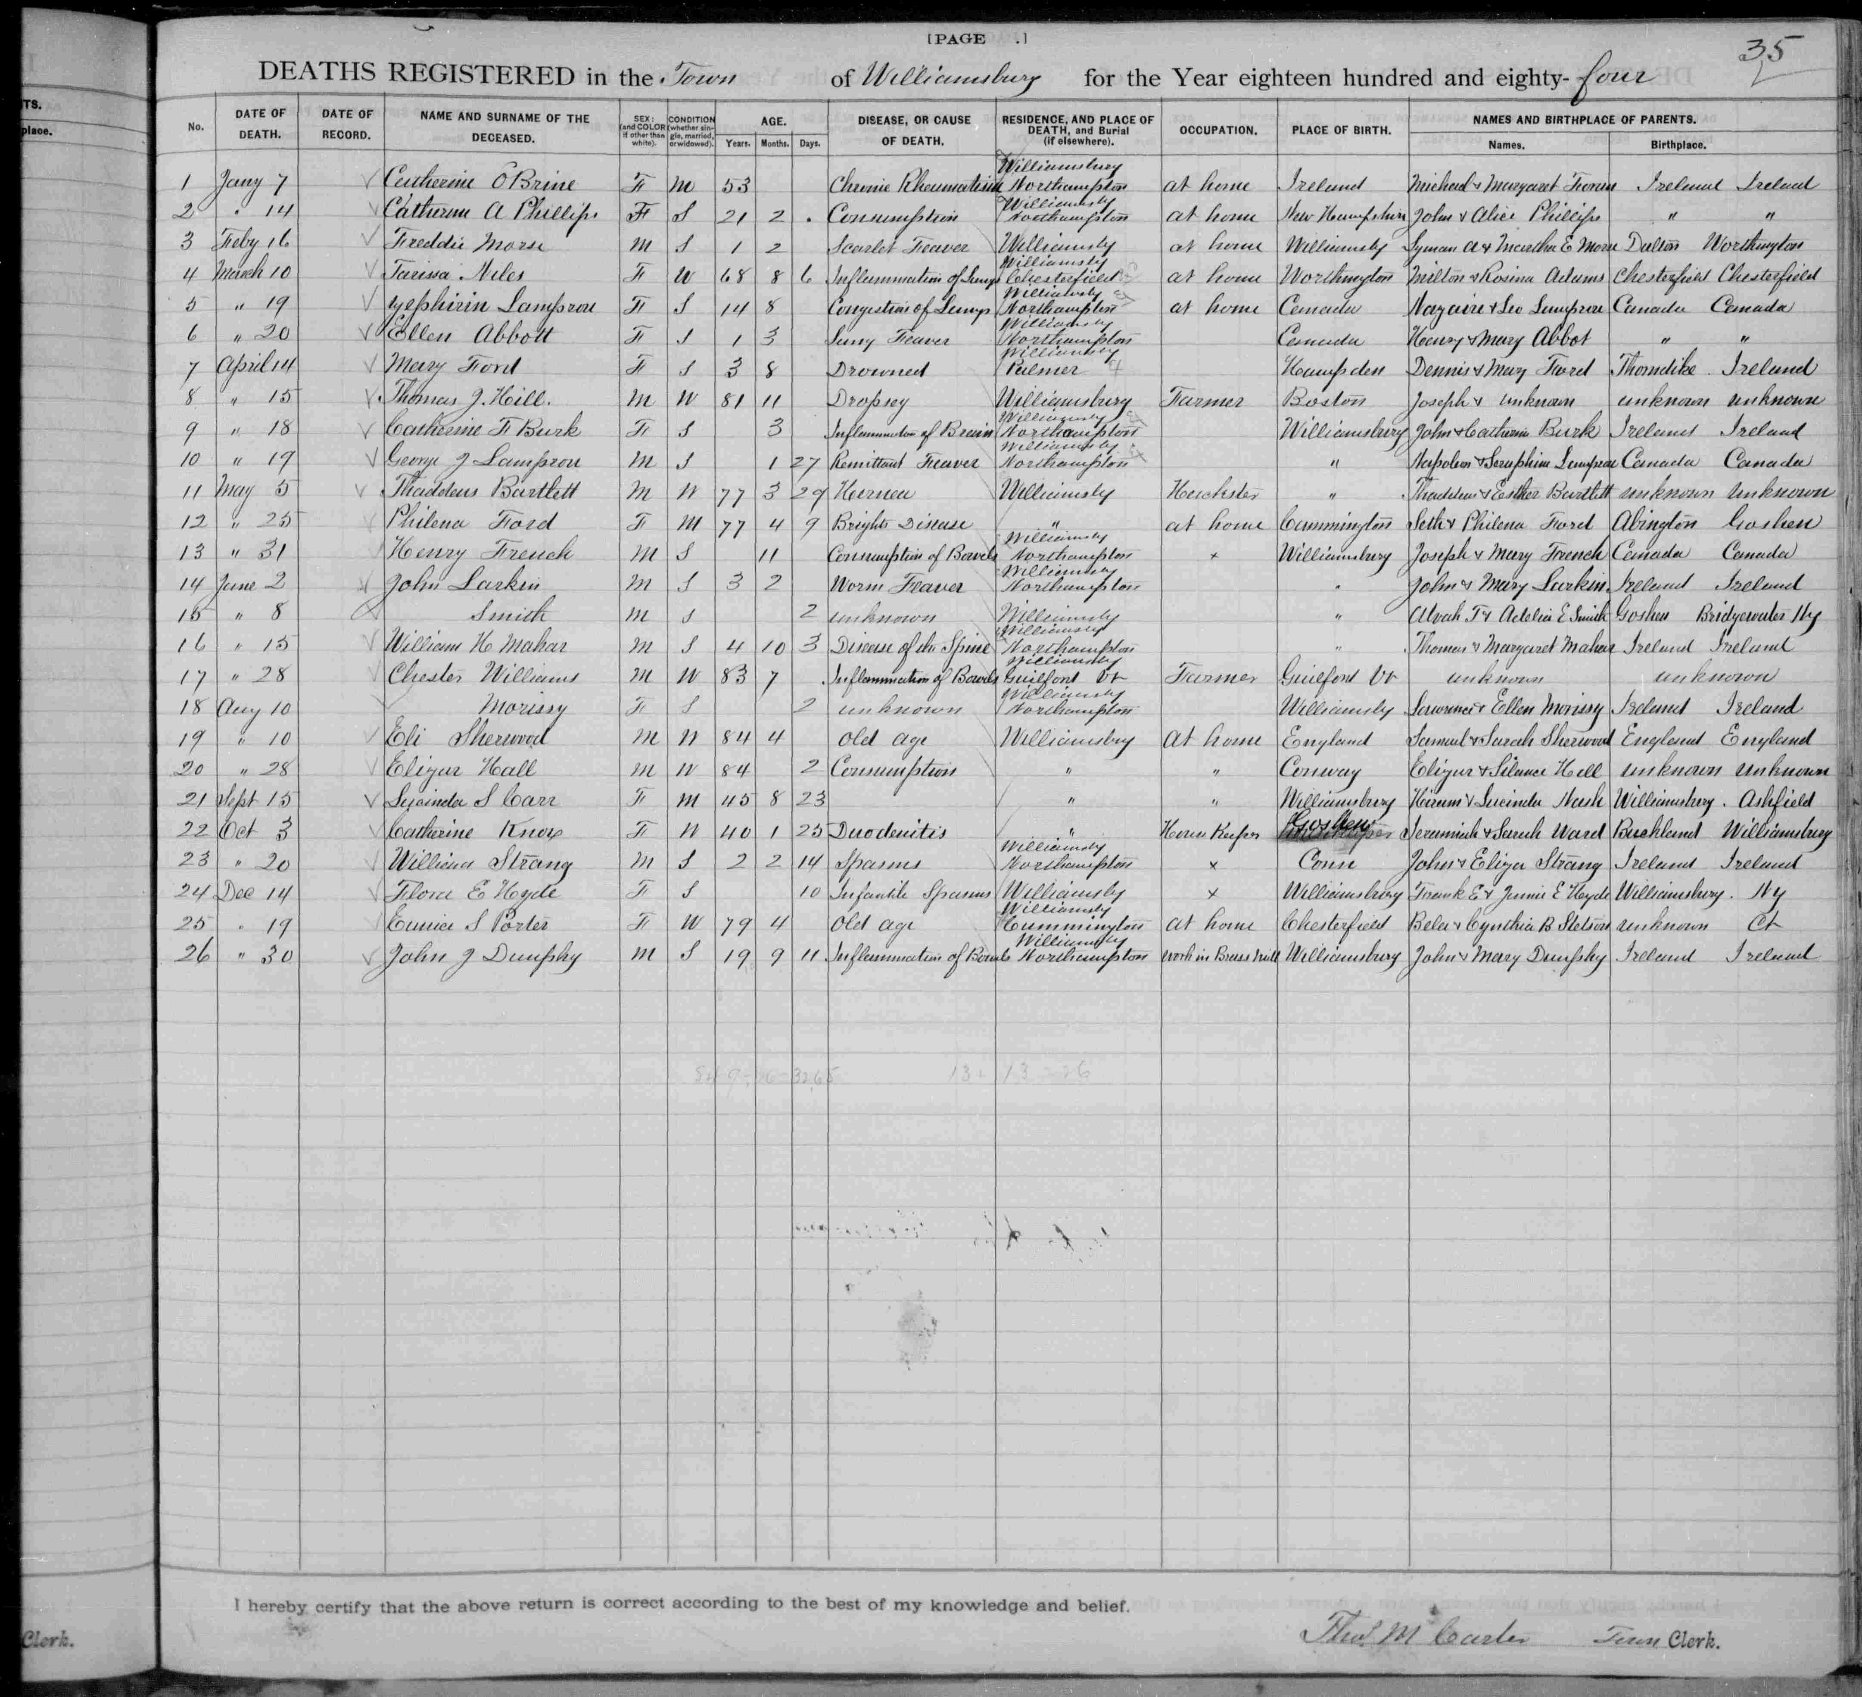 [PAGE .]
35
DEATHS REGISTERED in the Town of Williamsburg for the Year eighteen hundred and eighty-four
No. DATE OF DEATH. DATE OF RECORD. NAME AND SURNAME OF THE DECEASED. SEX: (and COLOR if other than white). CONDITION (whether single, married, or widowed). AGE. Years. Months. Days. DISEASE, OR CAUSE OF DEATH. RESIDENCE, AND PLACE OF DEATH, and Burial (if elsewhere). OCCUPATION. PLACE OF BIRTH. NAMES AND BIRTHPLACE OF PARENTS. Names. Birthplace.
1 Jany 7 Catherine O Brine F M 53 Chronic Rheumatism Williamsburg Northampton at home Ireland Michael & Margaret Ireland Ireland
2 " 14 Catherine A Phillips F S 21 2 . Consumption Williamsby Northampton at home New Hampshire John & Alice Phillips " "
3 Feby 16 Freddie Morse M S 1 2 Scarlet Feaver Williamsby at home Williamsby Lyman A & Martha E Morse Dalton Worthington
4 March 10 Niles F W 68 8 6 Inflammation of Lungs Williamsby Chesterfield at home Worthington Milton & Rosina Adams Chesterfield Chesterfield
5 " 19 Lampron F S 14 8 Congestion of Lungs Williamsby Northampton at home Canada & Lampron Canada Canada
6 " 20 Ellen Abbott F S 1 3 Lung Feaver Williamsby Northampton Canada Henry & Mary Abbot " "
7 April 14 Mary Ford F S 3 8 Drowned Williamsby Palmer Hampden Dennis & Mary Ford Thorndike Ireland
8 " 15 Thomas J. Hill. M W 81 11 Dropsey Williamsburg Farmer Boston Joseph & unknown unknown unknown
9 " 18 Catherine F Burk F S 3 Inflammation of Brain Williamsby Northampton Williamsburg John & Catherine Burk Ireland Ireland
10 " 19 George J Lampron M S 1 27 Remittant Feaver Williamsby Northampton " Napoleon & Seraphine Lampron Canada Canada
11 May 5 Thaddeus Bartlett M W 77 3 29 Hernea Williamsby " Thaddeus & Esther Bartlett unknown unknown
12 " 25 Philena Ford F M 77 4 9 Brights Disease " at home Cummington Seth & Philena Ford Abington Goshen
13 " 31 Henry French M S 11 Consumption of Bowels Williamsby Northampton x Williamsburg Joseph & Mary French Canada Canada
14 June 2 John Larkin M S 3 2 Worm Feaver Williamsby Northampton " John & Mary Larkin Ireland Ireland
15 " 8 Smith M S 2 unknown Williamsby " Alvah T & Adelia E Smith Goshen Bridgewater Ny
16 " 15 William H Mahar M S 4 10 3 Disease of the Spine Williamsby Northampton " Thomas & Margaret Mahar Ireland Ireland
17 " 28 Chester Williams M W 83 7 Inflammation of Bowels Williamsby Guilfort Vt Farmer Guilfort Vt unknown unknown
18 Aug 10 Morissy F S 2 unknown Williamsby Northampton Williamsby Lawrence & Ellen Morissy Ireland Ireland
19 " 10 Eli Sherwood M W 84 4 old age Williamsby at home England Samuel & Sarah Sherwood England England
20 " 28 Elizur Hall M W 84 2 Consumption " " Conway Elizur & Silence Hall unknown unknown
21 Sept 15 Lucinda S Carr F M 45 8 23 " " Williamsburg Hiram & Lucinda Nash Williamsburg. Ashfield
22 Oct 3 Catherine Knox F W 40 1 25 Duodenitis " House Keeper Goshen Jeremiah & Sarah Ward Buckland Williamsburg
23 " 20 William Strong M S 2 2 14 Spasms Williamsby Northampton x Conn John & Eliza Strong Ireland Ireland
24 Dec 14 Flora E Hyde F S 10 Infantile Spasms Williamsby x Williamsburg Frank E & Jennie E Hyde Williamsburg. Ny
25 " 19 Eunice S Porter F W 79 4 Old age Williamsby Cummington at home Chesterfield Bela & Cynthia B Stetson unknown Ct
26 " 30 John J Dunphy M S 19 9 11 Inflammation of Bowels Williamsby Northampton work in Brass mill Williamsburg John & Mary Dunphy Ireland Ireland
13 + 13 = 26
I hereby certify that the above return is correct according to the best of my knowledge and belief.
Thos M Carter Town Clerk.
TS.
place.
Clerk.